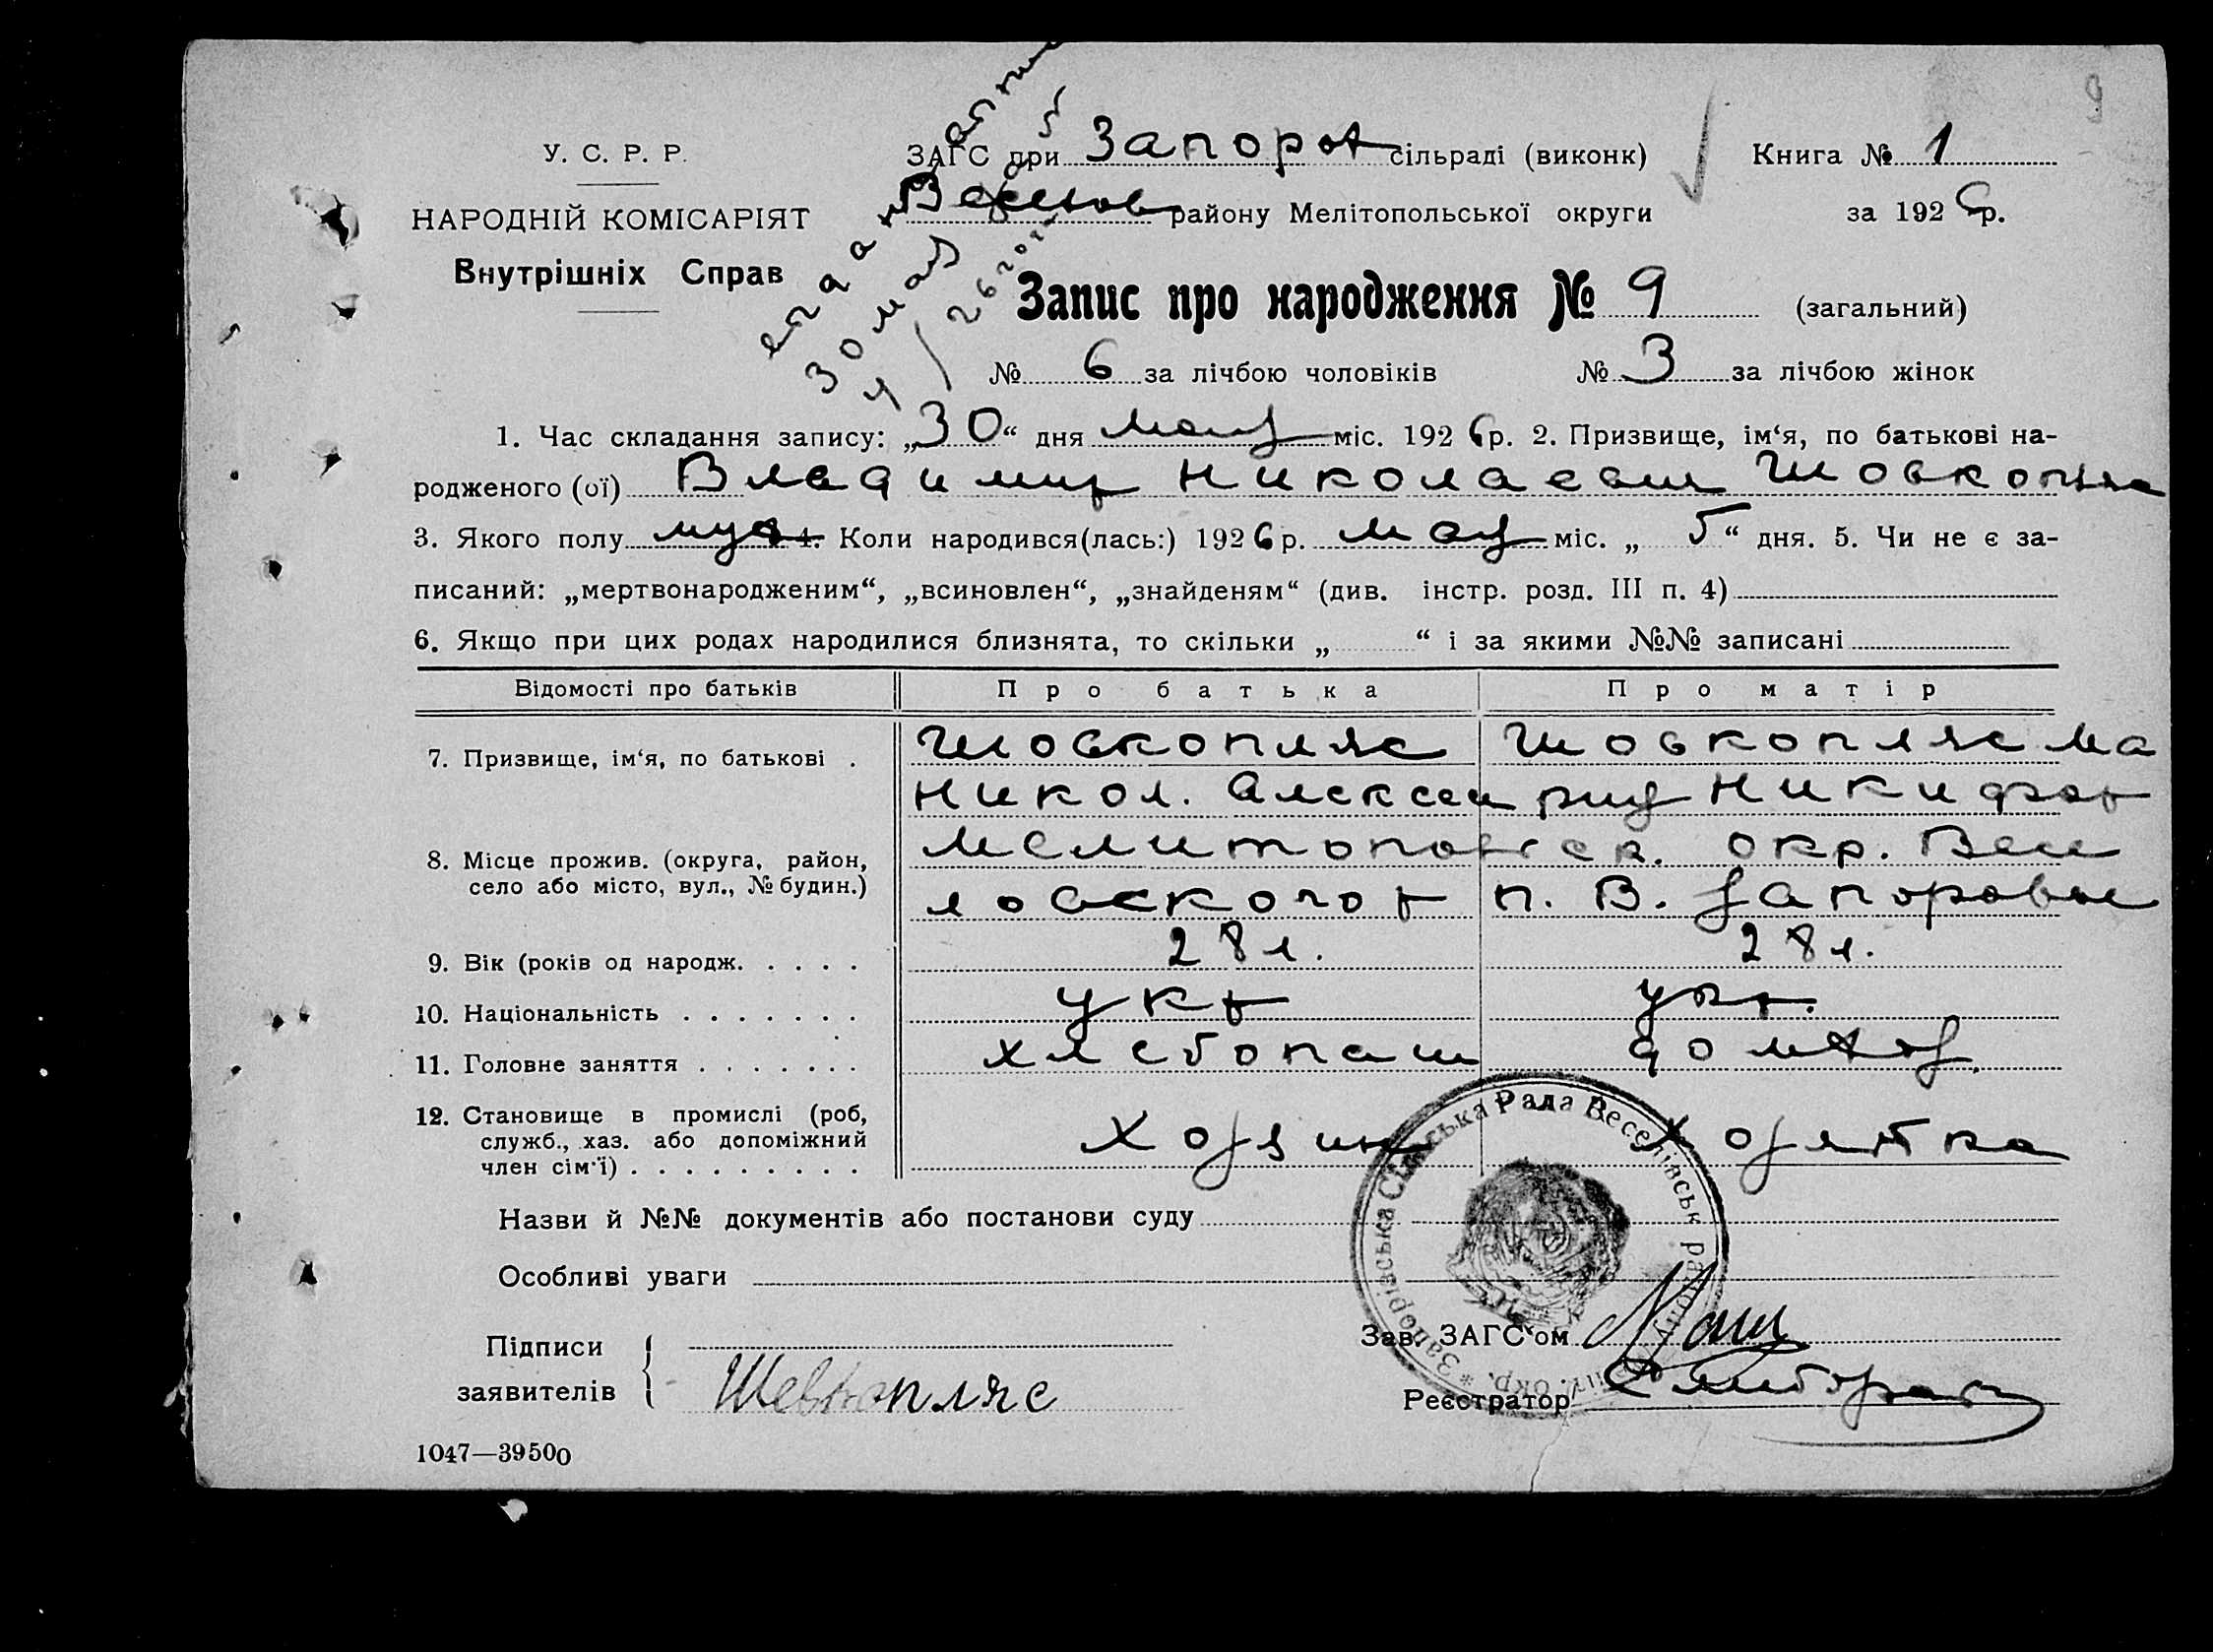 9
У. С. Р. Р.
ЗАГС при Запоров сільраді (виконк) Книга № 1
НАРОДНІЙ КОМІСАРІЯТ
Веселов району Мелітопольської округи за 1926 р.
Внутрішніх Справ
30 мая
Запис про народження № 9 (загальний)
№ 6 за лічбою чоловіків № 3 за лічбою жінок
1. Час складання запису: „30“ дня мая міс. 1926 р. 2. Призвище, ім‘я, по батькові на-
родженого (ої) Владимир Николаевич Шовкопляс
3. Якого полу муж 4. Коли народився(лась:) 1926 р. мая міс. „ 5 “ дня. 5. Чи не є за-
писаний: „мертвонародженим“, „всиновлен“, „знайденям“ (див. інстр. розд. III п. 4)
6. Якщо при цих родах народилися близнята, то скільки „ “ і за якими №№ записані
Відомості про батьків Про батька Про матір
7. Призвище, ім‘я, по батькові . Шовкопляс Шовкопляс Ма
Никол. Алексеи рия Никифор
8. Місце прожив. (округа, район, Мелитопольск. окр. Весе
село або місто, вул., № будин.) ловского р п. В.
9. Вік (років од народж. . . . . 28 л. 28 л.
10. Національність . . . . . . . укр укр.
11. Головне заняття . . . . . . . хлебопаш домхоз.
12. Становище в промислі (роб, Хозяин Хозяйка
служб., хаз. або допоміжний
член сім‘ї) . . . . . . . . .
Назви й №№ документів або постанови суду
Особливі уваги
Запорівська Сільська Рада Веселівськ. району
Підписи
заявителів Шевкопляс
Зав. ЗАГС‘ом
Реєстратор
1047—39500